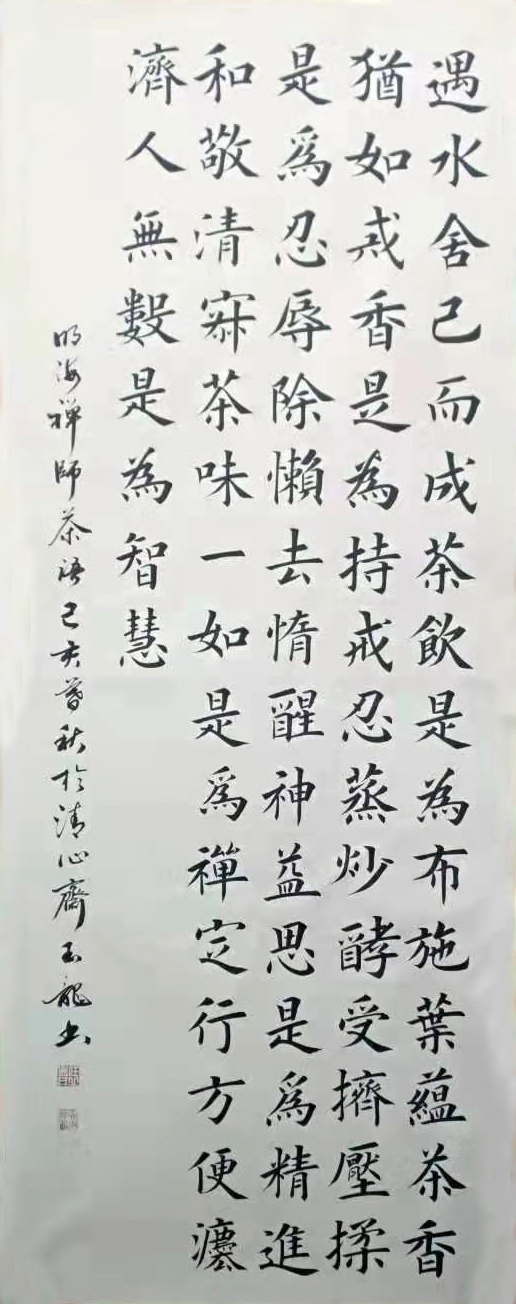 遇水舍己而成茶飲是為布施葉蘊茶香
猶如戒香是為持戒忍蒸炒酵受擠壓揉
是爲忍辱除懶去惰醒神益思是爲精進
和敬清寂茶味一如是爲禪定行方便灋
濟人無數是為智慧
明海禅師茶語己亥暮秋於清心齋玉龍书